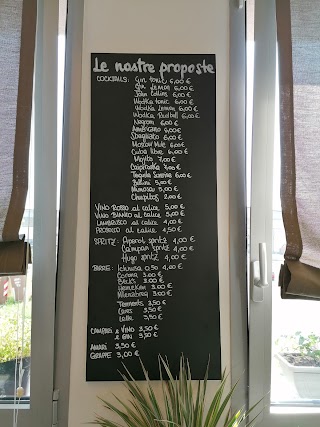 Le nostre proposte
COCKTAILS: Gin tonic 6,00 €
Gin Lemon 6,00 €
John Collins 6,00 €
Wodka tonic 6,00 €
Wodka Lemon 6,00 €
Wodka Redbull 6,00 €
Negroni 6,00 €
Americano 6,00 €
Sbagliato 6,00 €
Moscow Mule 6,00 €
Cuba libre 6,00 €
Mojito 7,00 €
Caipiroska 7,00 €
Tequila Sunrise 6,00 €
Bellini 5,00 €
Mimosa 5,00 €
Chupitos 2,00 €
VINO ROSSO al calice 5,00 €
VINO BIANCO al calice 5,00 €
LAMBRUSCO al calice 4,00 €
PROSECCO al calice 4,50 €
SPRITZ: Aperol spritz 4,00 €
Campari spritz 4,00 €
Hugo spritz 4,00 €
BIRRE: Ichnusa 0,50 4,00 €
Corona 3,00 €
Beck's 3,00 €
Heineken 3,00 €
Menabrea 3,00 €
Tennents 3,50 €
Ceres 3,50 €
Leffe 3,50 €
CAMPARI e VINO 3,50 €
e GIN 3,50 €
AMARI 3,50 €
GRAPPE 3,00 €